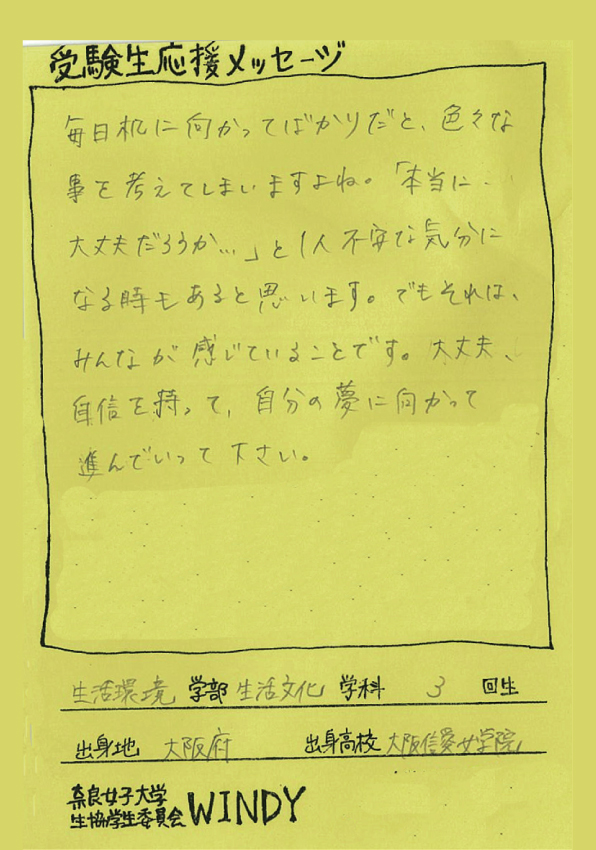 受験生応援メッセージ
毎日机に向かってばかりだと、色々な
事を考えてしまいますよね。「本当に
大丈夫だろうか…」と1人不安な気分に
なる時もあると思います。でもそれは、
みんなが感じていることです。大丈夫、
自信を持って、自分の夢に向かって
進んでいって下さい。
生活環境 学部 生活文化 学科 3 回生
出身地 大阪府 出身高校 大阪信愛女学院
奈良女子大学
生協学生委員会 WINDY